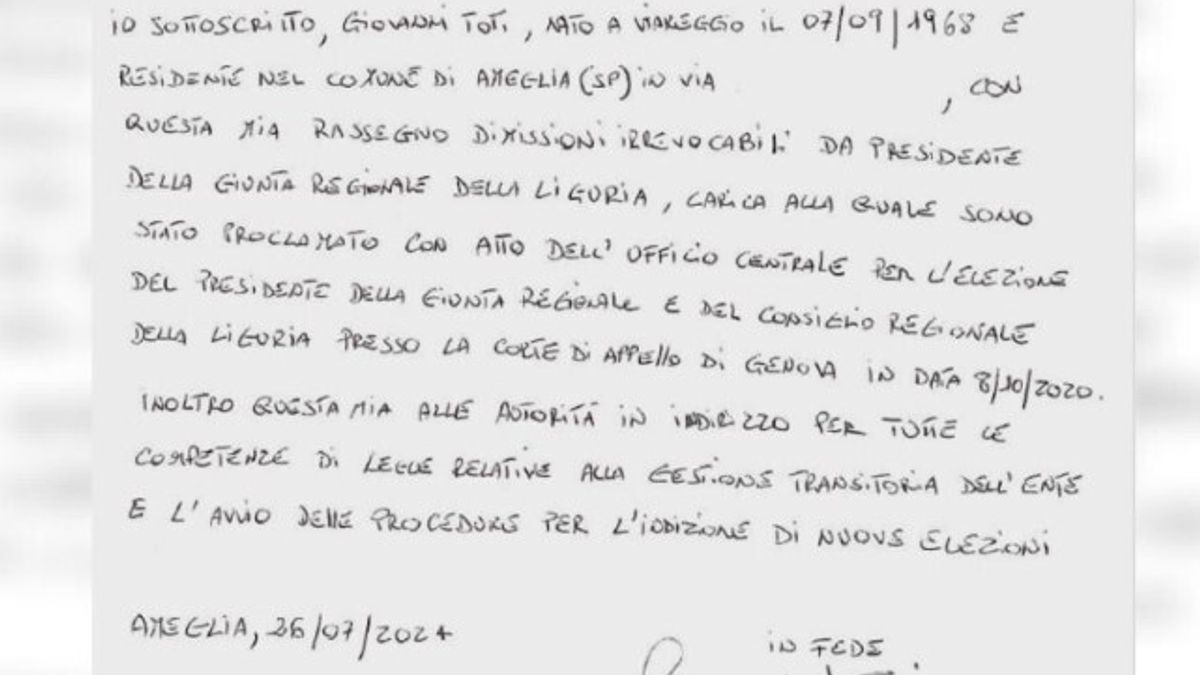 IO SOTTOSCRITTO, GIOVANNI TOTI, NATO A VIAREGGIO IL 07/09/1968 E
RESIDENTE NEL COMUNE DI AMEGLIA (SP) IN VIA , CON
QUESTA MIA RASSEGNO DIMISSIONI IRREVOCABILI DA PRESIDENTE
DELLA GIUNTA REGIONALE DELLA LIGURIA, CARICA ALLA QUALE SONO
STATO PROCLAMATO CON ATTO DELL'UFFICIO CENTRALE PER L'ELEZIONE
DEL PRESIDENTE DELLA GIUNTA REGIONALE E DEL CONSIGLIO REGIONALE
DELLA LIGURIA PRESSO LA CORTE DI APPELLO DI GENOVA IN DATA 8/10/2020.
INOLTRO QUESTA MIA ALLE AUTORITÀ IN INDIRIZZO PER TUTTE LE
COMPETENZE DI LEGGE RELATIVE ALLA GESTIONE TRANSITORIA DELL'ENTE
E L'AVVIO DELLE PROCEDURE PER L'INDIZIONE DI NUOVE ELEZIONI
AMEGLIA, 26/07/2024
IN FEDE